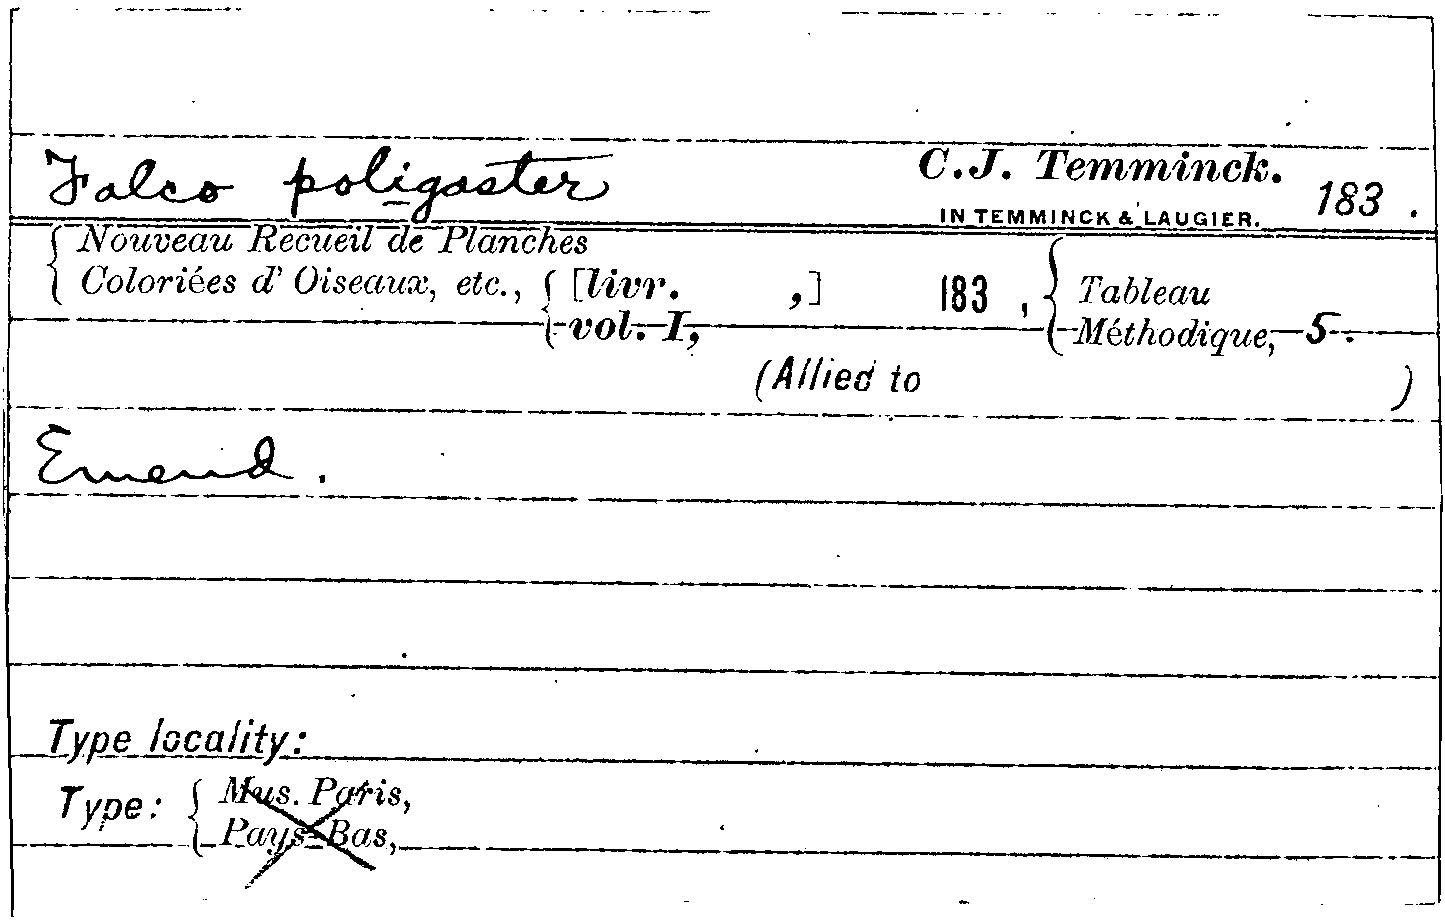 Falco poligaster C.J. Temminck.
IN TEMMINCK & LAUGIER. 183 .
{ Nouveau Recueil de Planches
Coloriées d' Oiseaux, etc., { [livr. ,] 183 , { Tableau
vol. I, Méthodique, 5.
(Allied to )
Emend.
Type locality:
Type: { Mus. Paris,
Pays-Bas,